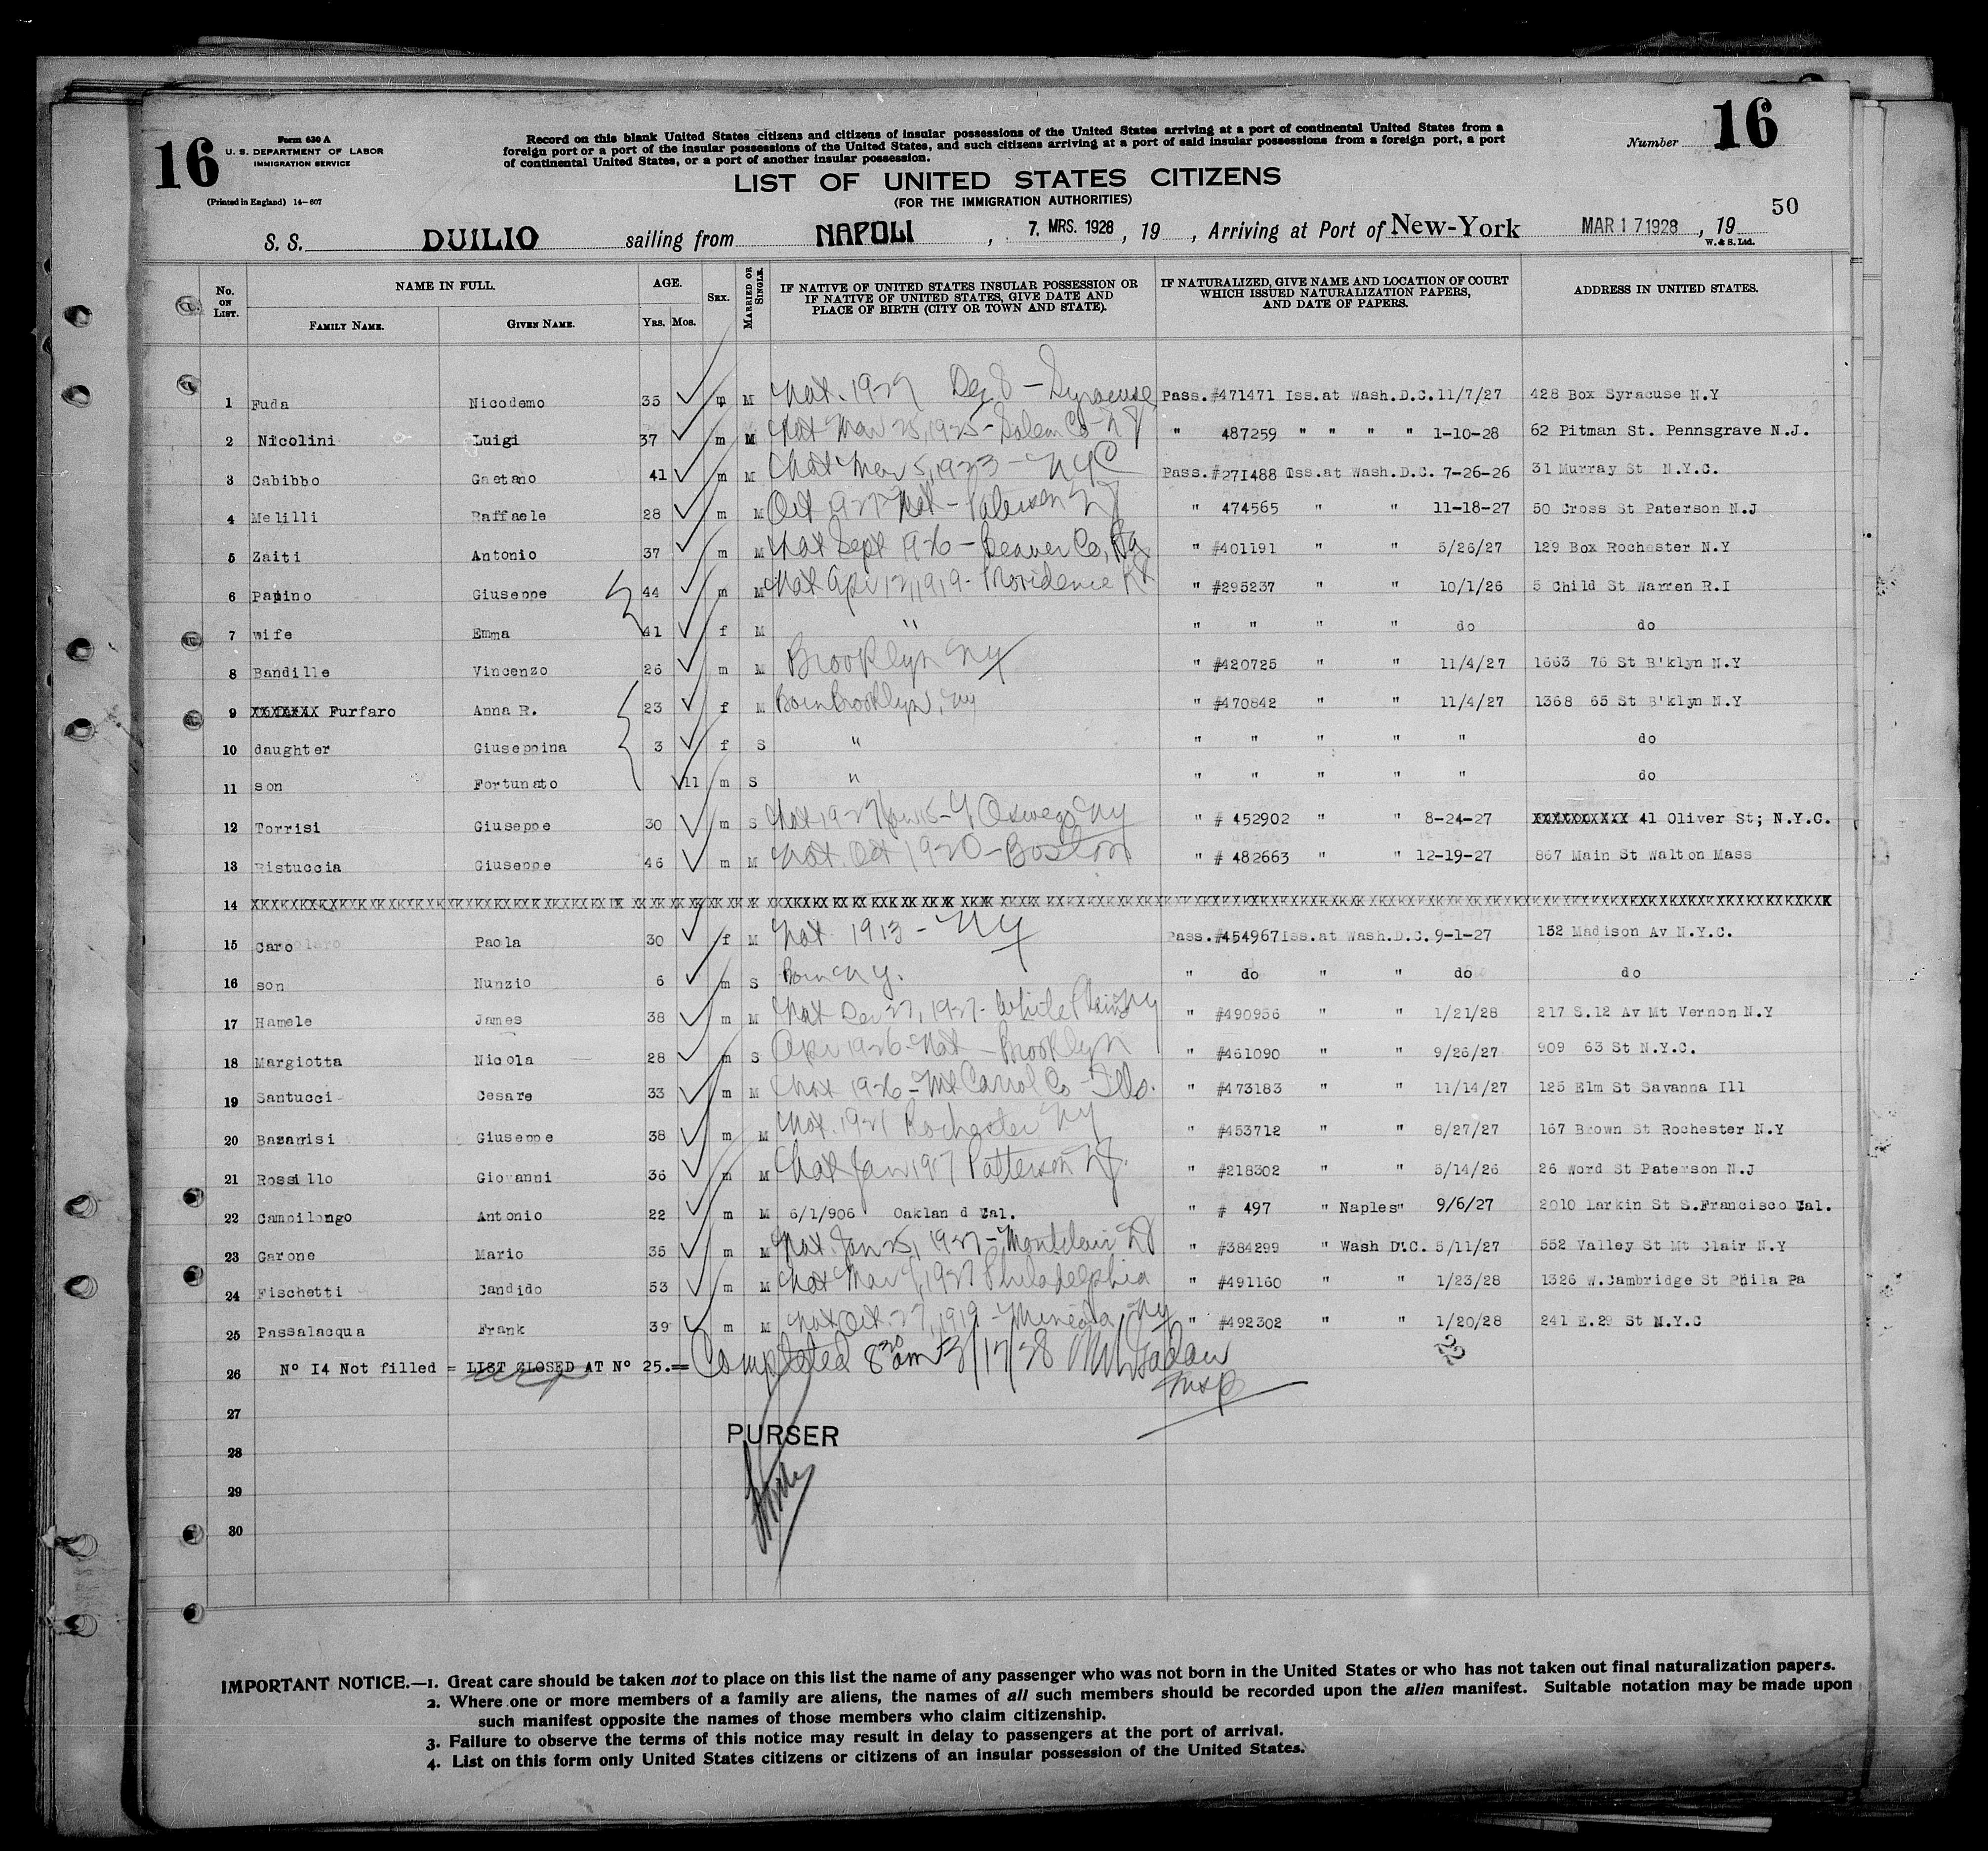 16
Form 630 A
U. S. DEPARTMENT OF LABOR
IMMIGRATION SERVICE
(Printed in England) 14-607
Record on this blank United States citizens and citizens of insular possessions of the United States arriving at a port of continental United States from a
foreign port or a port of the insular possessions of the United States, and such citizens arriving at a port of said insular possessions from a foreign port, a port
of continental United States, or a port of another insular possession.
Number 16
LIST OF UNITED STATES CITIZENS
(FOR THE IMMIGRATION AUTHORITIES)
50
S. S. DUILIO sailing from NAPOLI, 7. MRS. 1928, 19 , Arriving at Port of New-York MAR 17 1928, 19
W. & S. Ltd.
No. ON LIST. NAME IN FULL. FAMILY NAME. GIVEN NAME. AGE. YRS. MOS. SEX. MARRIED OR SINGLE. IF NATIVE OF UNITED STATES INSULAR POSSESSION OR IF NATIVE OF UNITED STATES, GIVE DATE AND PLACE OF BIRTH (CITY OR TOWN AND STATE). IF NATURALIZED, GIVE NAME AND LOCATION OF COURT WHICH ISSUED NATURALIZATION PAPERS, AND DATE OF PAPERS. ADDRESS IN UNITED STATES.
1 Fuda Nicodemo 35 m M Nat. 1927 Dec 8 - Syracuse Pass. #471471 Iss.at Wash.D.C. 11/7/27 428 Box Syracuse N.Y
2 Nicolini Luigi 37 m M Nat Mar 25, 1925 - Salem Co - NJ " 487259 " " " " 1-10-28 62 Pitman St. Pennsgrave N.J.
3 Cabibbo Gaetano 41 m M Nat Mar 5, 1923 - NYC Pass. #271488 Iss.at Wash.D.C. 7-26-26 31 Murray St N.Y.C.
4 Melilli Raffaele 28 m M Oct 1927 Nat - Paterson NJ " 474565 " " 11-18-27 50 Cross St Paterson N.J
5 Zaiti Antonio 37 m M Nat Sept 1926 - Beaver Co, Pa " #401191 " " 5/26/27 129 Box Rochester N.Y
6 Papino Giuseppe 44 m M Nat Apr 12, 1919 - Providence RI " #295237 " " 10/1/26 5 Child St Warren R.I
7 wife Emma 41 f M " " " " " do do
8 Bandille Vincenzo 26 m M Brooklyn NY " #420725 " " 11/4/27 1663 76 St B'klyn N.Y
9 XXXXXXX Furfaro Anna R. 23 f M Born Brooklyn, NY " #470842 " " 11/4/27 1368 65 St B'klyn N.Y
10 daughter Giuseppina 3 f S " " " " " " do
11 son Fortunato 11 m S " " " " " " do
12 Torrisi Giuseppe 30 m S Nat 1927 Oswego NY " # 452902 " " 8-24-27 XXXXXXXXXX 41 Oliver St; N.Y.C.
13 Ristuccia Giuseppe 46 m M Nat. Oct 1920 - Boston " # 482663 " " 12-19-27 867 Main St Walton Mass
14
15 Caro Paola 30 f M Nat 1913 - NY Pass. #454967 Iss.at Wash.D.C. 9-1-27 152 Madison Av N.Y.C.
16 son Nunzio 6 m S Born NY. " do " " do do
17 Hamele James 38 m M Nat Dec 27, 1927 - White Plains NY " #490956 " " 1/21/28 217 S.12 Av Mt Vernon N.Y
18 Margiotta Nicola 28 m S Apr 1926 - Nat - Brooklyn " #461090 " " 9/26/27 909 63 St N.Y.C.
19 Santucci Cesare 33 m M Nat 1926 - Mt Carrol Co - Ills. " #473183 " " 11/14/27 125 Elm St Savanna Ill
20 Bazarrisi Giuseppe 38 m M Nat. 1921 Rochester NY " #453712 " " 8/27/27 167 Brown St Rochester N.Y
21 Rossillo Giovanni 36 m M Nat Jan 1917 Patterson NJ. " #218302 " " 5/14/26 26 Word St Paterson N.J
22 Campilongo Antonio 22 m M 6/1/906 Oakland Cal. " # 497 " Naples" 9/6/27 2010 Larkin St S.Francisco Cal.
23 Garone Mario 35 m M Nat. Jan 25, 1927 - Montclair NJ " #384299 " Wash D.C. 5/11/27 552 Valley St Mt Clair N.Y
24 Fischetti Candido 53 m M Nat Mar 7, 1927 Philadelphia " #491160 " " 1/23/28 1326 W.Cambridge St Phila Pa
25 Passalacqua Frank 39 m M Nat Oct. 27, 1919 - Mineola, NY " #492302 " " 1/20/28 241 E.29 St N.Y.C
26 No 14 Not filled = LIST CLOSED AT No 25.= Completed 8 30 am 3/17/28 Insp 22
27
PURSER
28
29
30
IMPORTANT NOTICE.—1. Great care should be taken not to place on this list the name of any passenger who was not born in the United States or who has not taken out final naturalization papers.
2. Where one or more members of a family are aliens, the names of all such members should be recorded upon the alien manifest. Suitable notation may be made upon
such manifest opposite the names of those members who claim citizenship.
3. Failure to observe the terms of this notice may result in delay to passengers at the port of arrival.
4. List on this form only United States citizens or citizens of an insular possession of the United States.